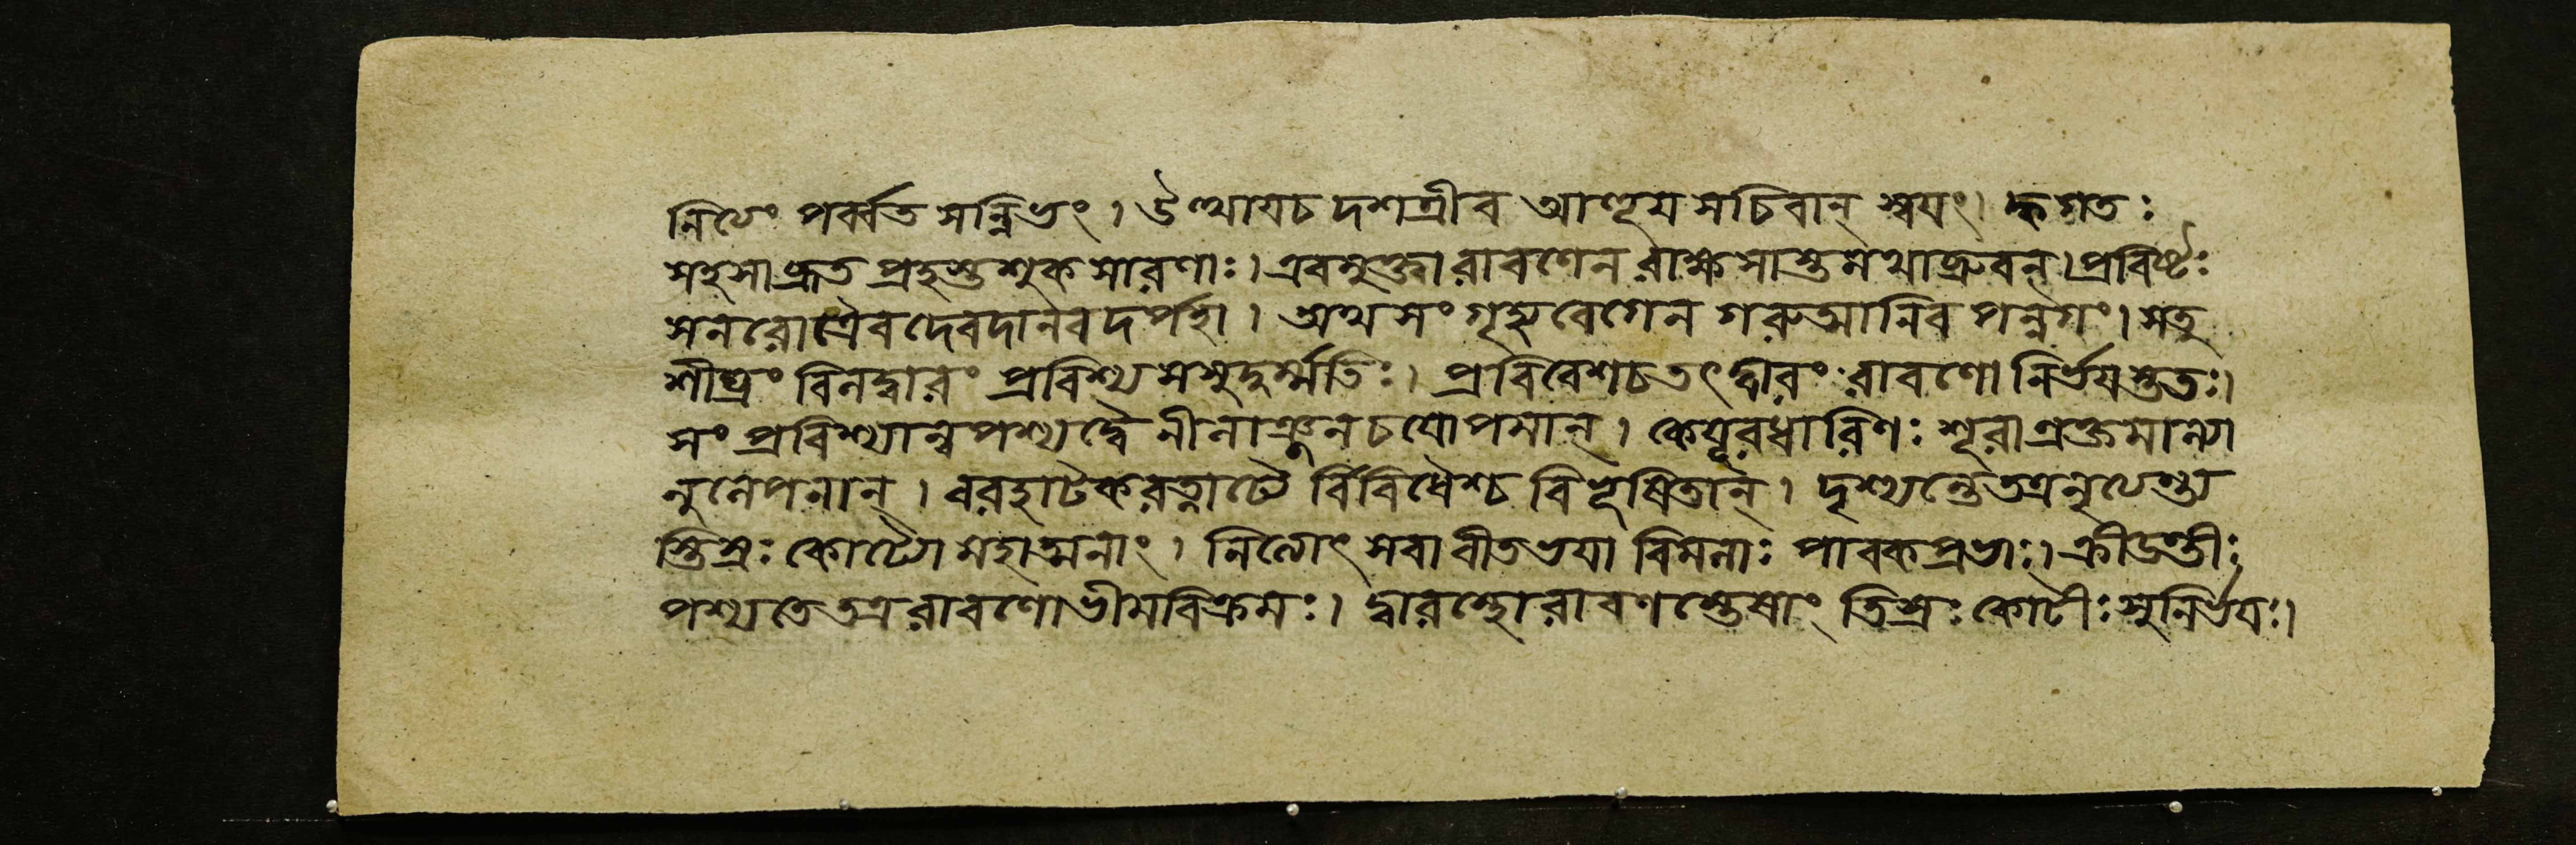 নিপেং পর্ব্বত সন্নিভং । উত্থায়চ দশগ্রীব আহূয় সচিবান্ স্বয়ং । ক্ব গতঃ
সহসা ব্রূত প্রহস্ত শুক সারণাঃ । এবমুক্তা রাবণেন রাক্ষসাস্তমথাব্রুবন্ । প্রবিষ্টঃ
স নরো ত্রৈব দেবদানব দর্পহা । অথ সংগৃহ্য বেগেন গরুত্মানিব পন্নগং । সতু
শীঘ্রং বিলদ্বারং প্রবিশ্য সসুদুর্ম্মতিঃ । প্রবিবেশচ তৎদ্বারং রাবণো নির্ভয়স্ততঃ ।
সংপ্রবিশ্যান্বপশ্যদ্বৈ নীলাঞ্জনচয়োপমান্ । কেয়ূরধারিণঃ শূরা রক্তমাল্যা
নুলেপনান্ । বরহাটকরত্নাদ্যৈ র্বিবিধৈশ্চ বিভূষিতান্ । দৃশ্যন্তে তত্র নৃত্যন্ত্য
স্তিস্রঃ কোট্যো মহাত্মনাং । নিলোৎসবা বীতভয়া বিমলাঃ পাবকপ্রভাঃ । ক্রীডন্তীঃ
পশ্যতে তত্র রাবণো ভীমবিক্রমঃ । দ্বারস্থো রাবণস্তেষাং তিস্রঃ কোটীঃ সুনির্ভয়ঃ ।